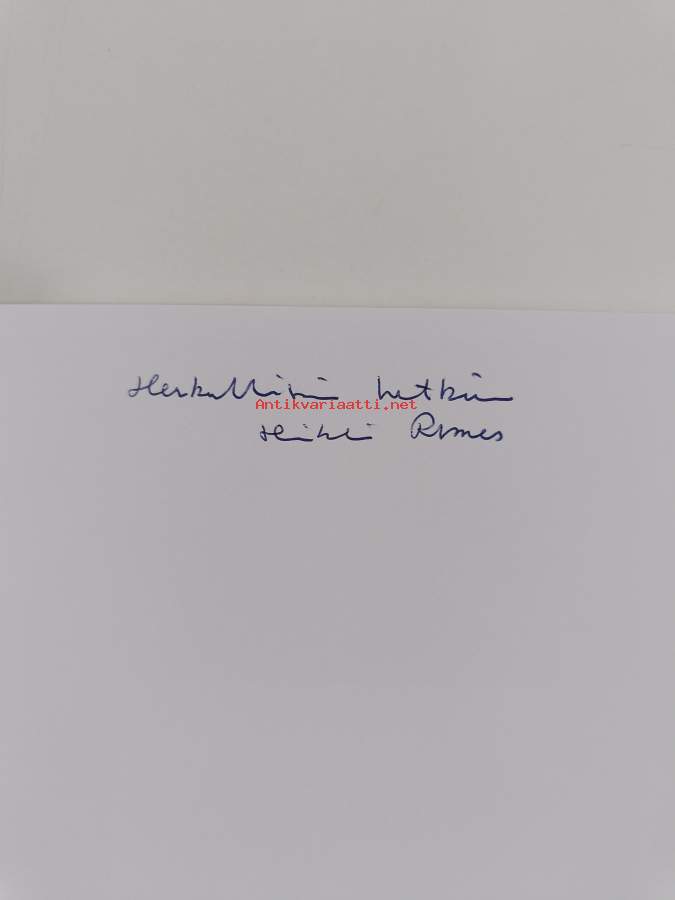 Herkullisia hetkiä
Antikvariaatti.net
Heikki Remes